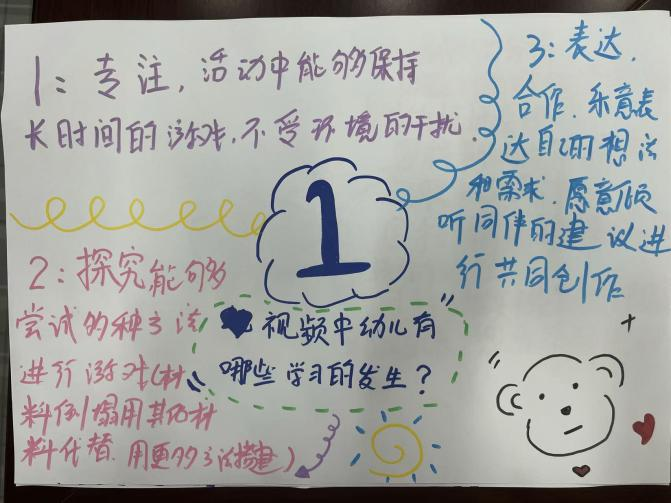 1：专注，活动中能够保持
长时间的游戏，不受环境的干扰.
3：表达，
合作．乐意表
达自己的想法
和需求．愿意倾
听同伴的建议进
行共同创作
1
2：探究能够
尝试多种方法
进行游戏(材
料倒塌用其他材
料代替．用更多方法搭建)
视频中幼儿有
哪些学习的发生？